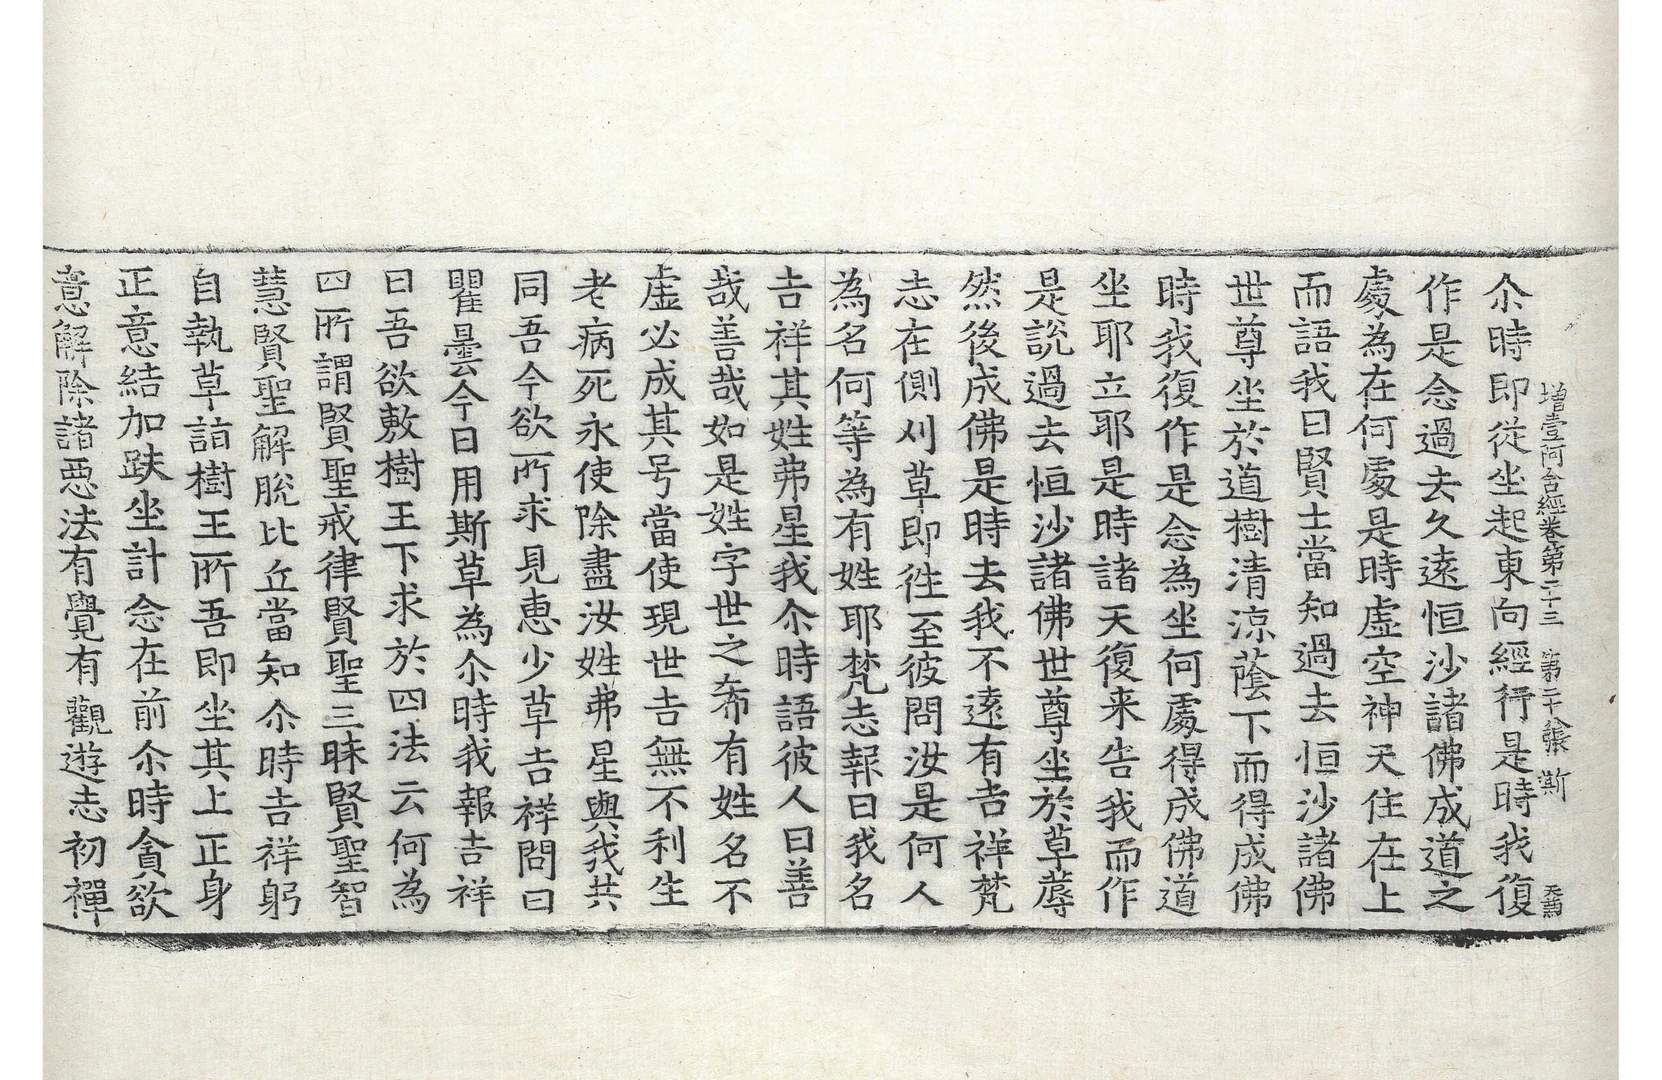 增壹阿含經卷第二十三 第二十張 斯
尒時即從坐起東向經行是時我復
作是念過去久遠恒沙諸佛成道之
處為在何處是時虛空神天住在上
而語我曰賢士當知過去恒沙諸佛
世尊坐於道樹清涼蔭下而得成佛
時我復作是念為坐何處得成佛道
坐耶立耶是時諸天復来告我而作
是說過去恒沙諸佛世尊坐於草蓐
然後成佛是時去我不遠有吉祥梵
志在側刈草即徃至彼問汝是何人
為名何等為有姓耶梵志報曰我名
吉祥其姓弗星我尒時語彼人曰善
哉善哉如是姓字世之希有姓名不
虛必成其号當使現世吉無不利生
老病死永使除盡汝姓弗星與我共
同吾今欲所求見惠少草吉祥問曰
瞿曇今日用斯草為尒時我報吉祥
曰吾欲敷樹王下求於四法云何為
四所謂賢聖戒律賢聖三昧賢聖智
慧賢聖解脫比丘當知尒時吉祥躬
自執草詣樹王所吾即坐其上正身
正意結加趺坐計念在前尒時貪欲
意解除諸惡法有覺有觀遊志初禪